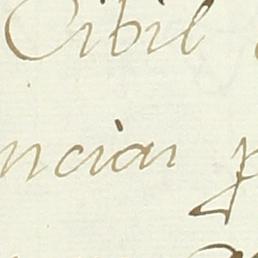 Cibil
ncian p